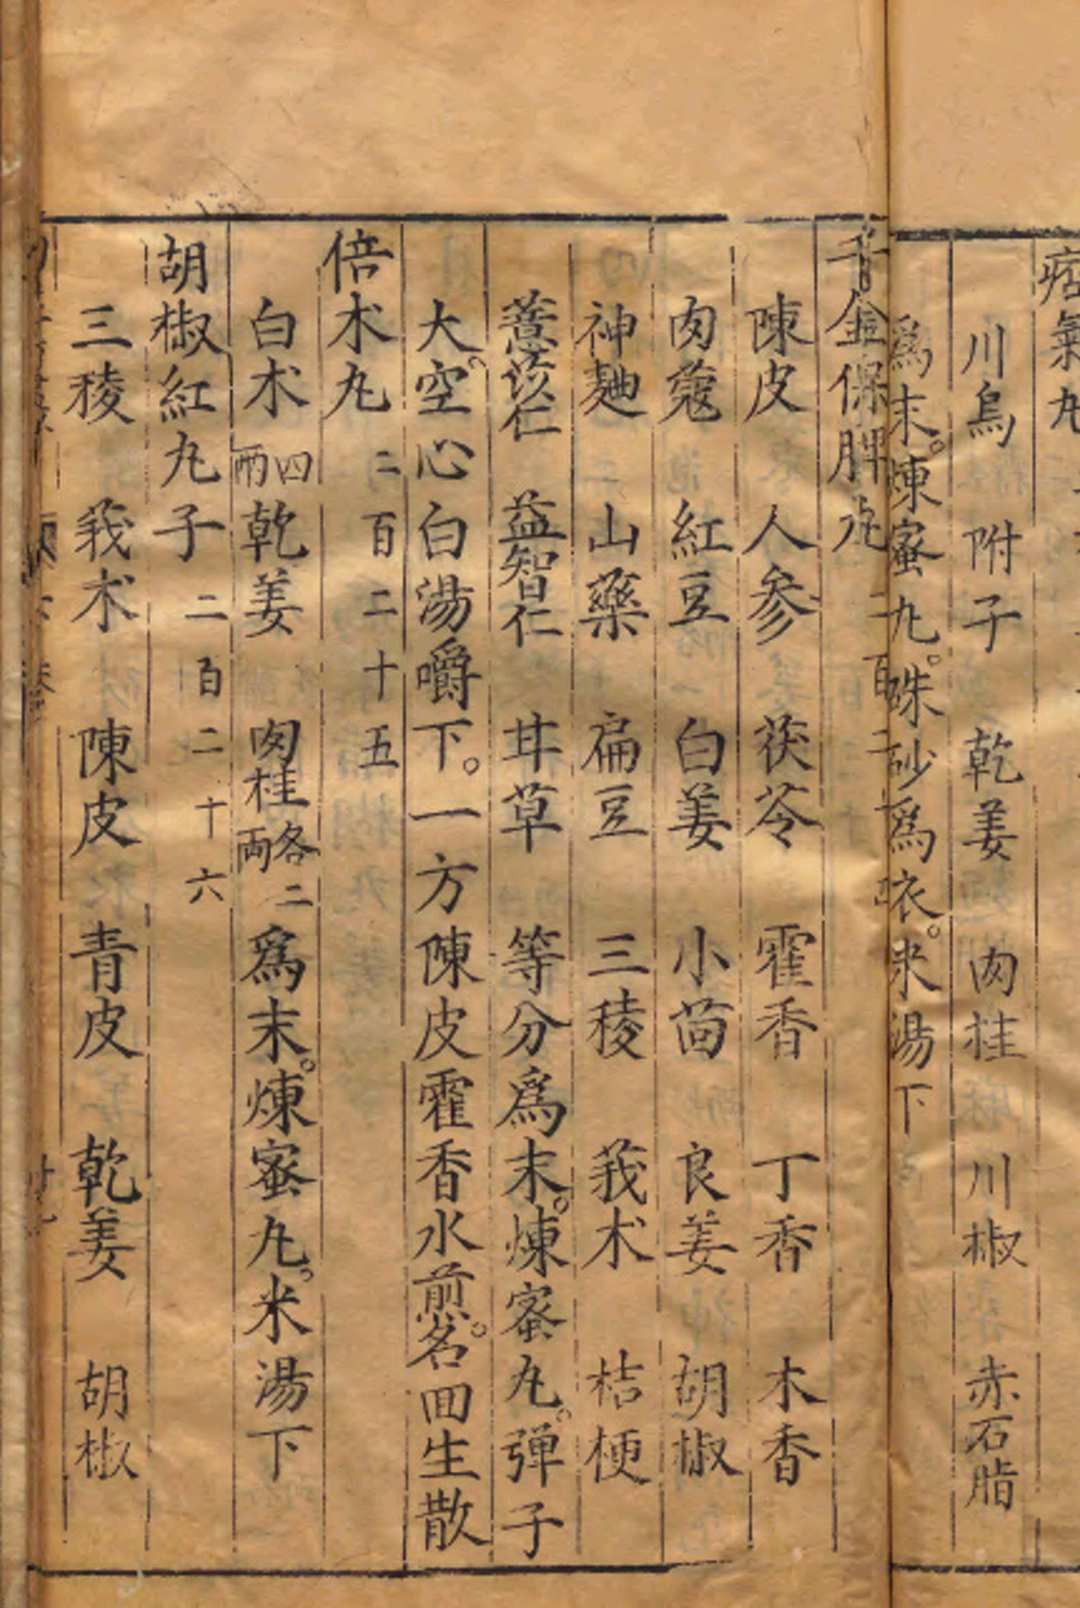 痞氣丸
川烏 附子 乾姜 肉桂 川椒 赤石脂
爲末。煉蜜丸。硃砂爲衣。米湯下
千金保脾丸 二百二十
陳皮 人参 茯苓 霍香 丁香 木香
肉蔻 紅豆 白姜 小茴 良姜 胡椒
神麯 山藥 扁豆 三稜 莪术 桔梗
薏苡仁 益智仁 甘草 等分爲末。煉蜜丸。弹子
大。空心白湯嚼下。一方陳皮霍香水煎。名回生散
倍术丸 二百二十五
白术四兩 乾姜 肉桂各二両 爲末。煉蜜丸。米湯下
胡椒紅丸子 二百二十六
三稜 莪术 陳皮 青皮 乾姜 胡椒